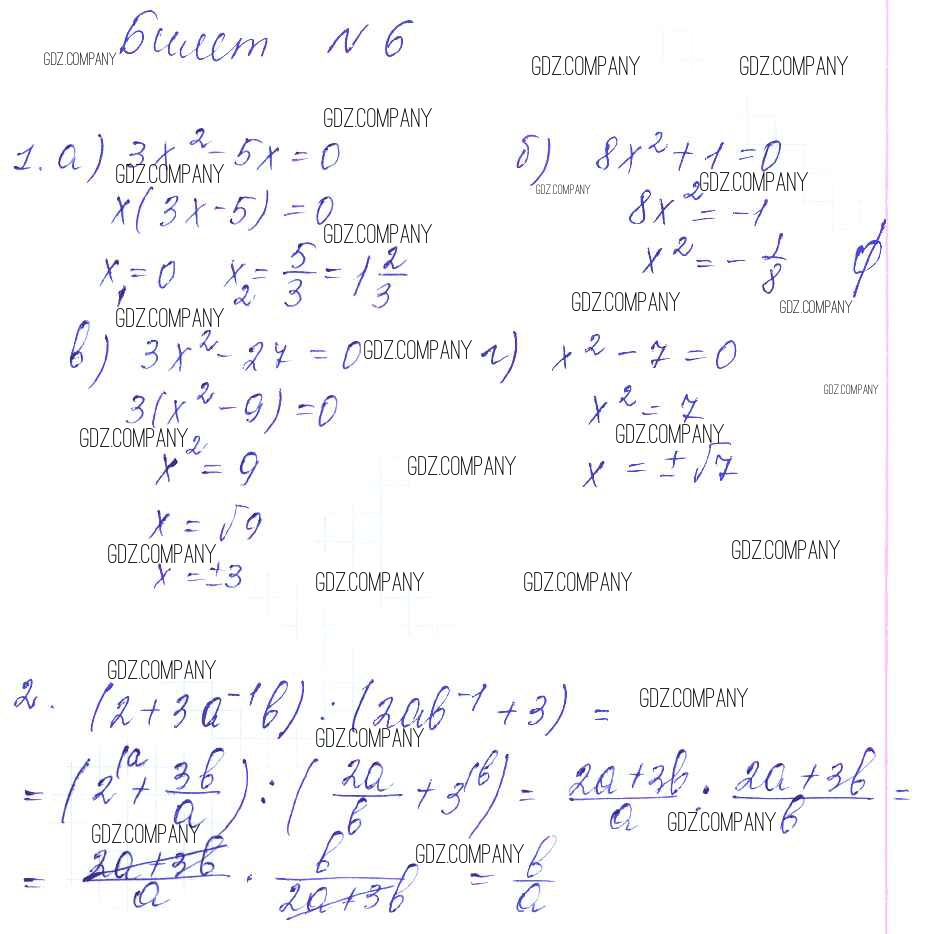 Билет № 6
GDZ.COMPANY GDZ.COMPANY GDZ.COMPANY
GDZ.COMPANY
1. а) 3x² - 5x = 0 б) 8x² + 1 = 0
GDZ.COMPANY GDZ.COMPANY GDZ.COMPANY
x(3x - 5) = 0 8x² = -1
GDZ.COMPANY
x₁ = 0 x₂ = 5/3 = 1 2/3 x² = - 1/8 ∅
GDZ.COMPANY GDZ.COMPANY GDZ.COMPANY
в) 3x² - 27 = 0 GDZ.COMPANY г) x² - 7 = 0
GDZ.COMPANY
3(x² - 9) = 0 x² = 7
GDZ.COMPANY GDZ.COMPANY
x² = 9 GDZ.COMPANY x = ±√7
x = √9
GDZ.COMPANY GDZ.COMPANY
x = ±3 GDZ.COMPANY GDZ.COMPANY
GDZ.COMPANY
2. (2 + 3a⁻¹b) : (2ab⁻¹ + 3) = GDZ.COMPANY
GDZ.COMPANY
= (2^(a + 3b/a) : (2a/b + 3^(b) = (2a + 3b)/a · (2a + 3b)/b =
GDZ.COMPANY GDZ.COMPANY
= (2a + 3b)/a · b/(2a + 3b) = b/a
GDZ.COMPANY